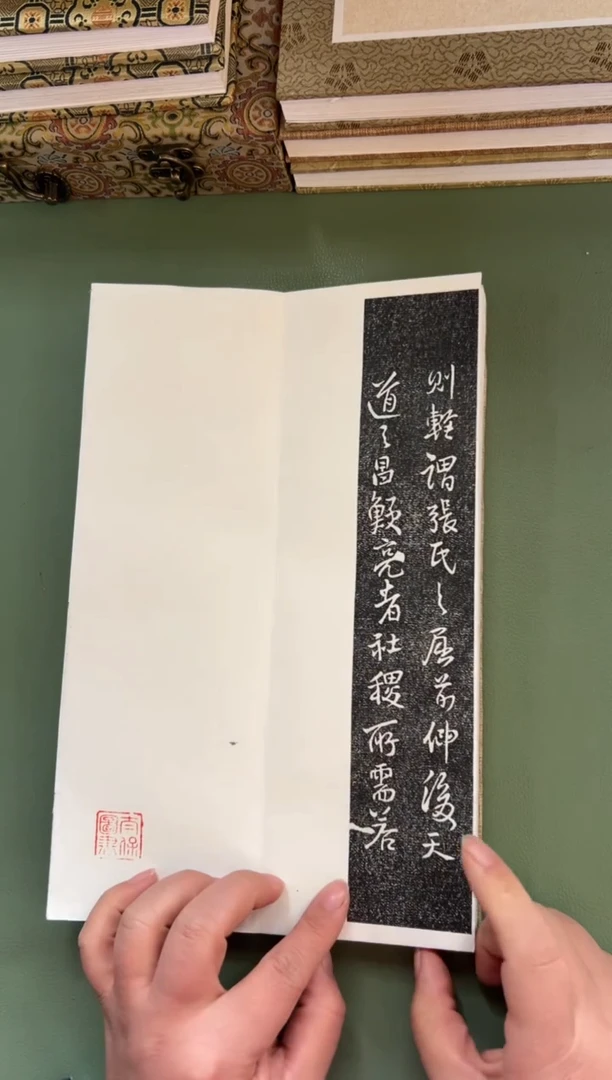 則輕謂張氏之屈前伸後天
道之昌鯁亮者社稷所需若